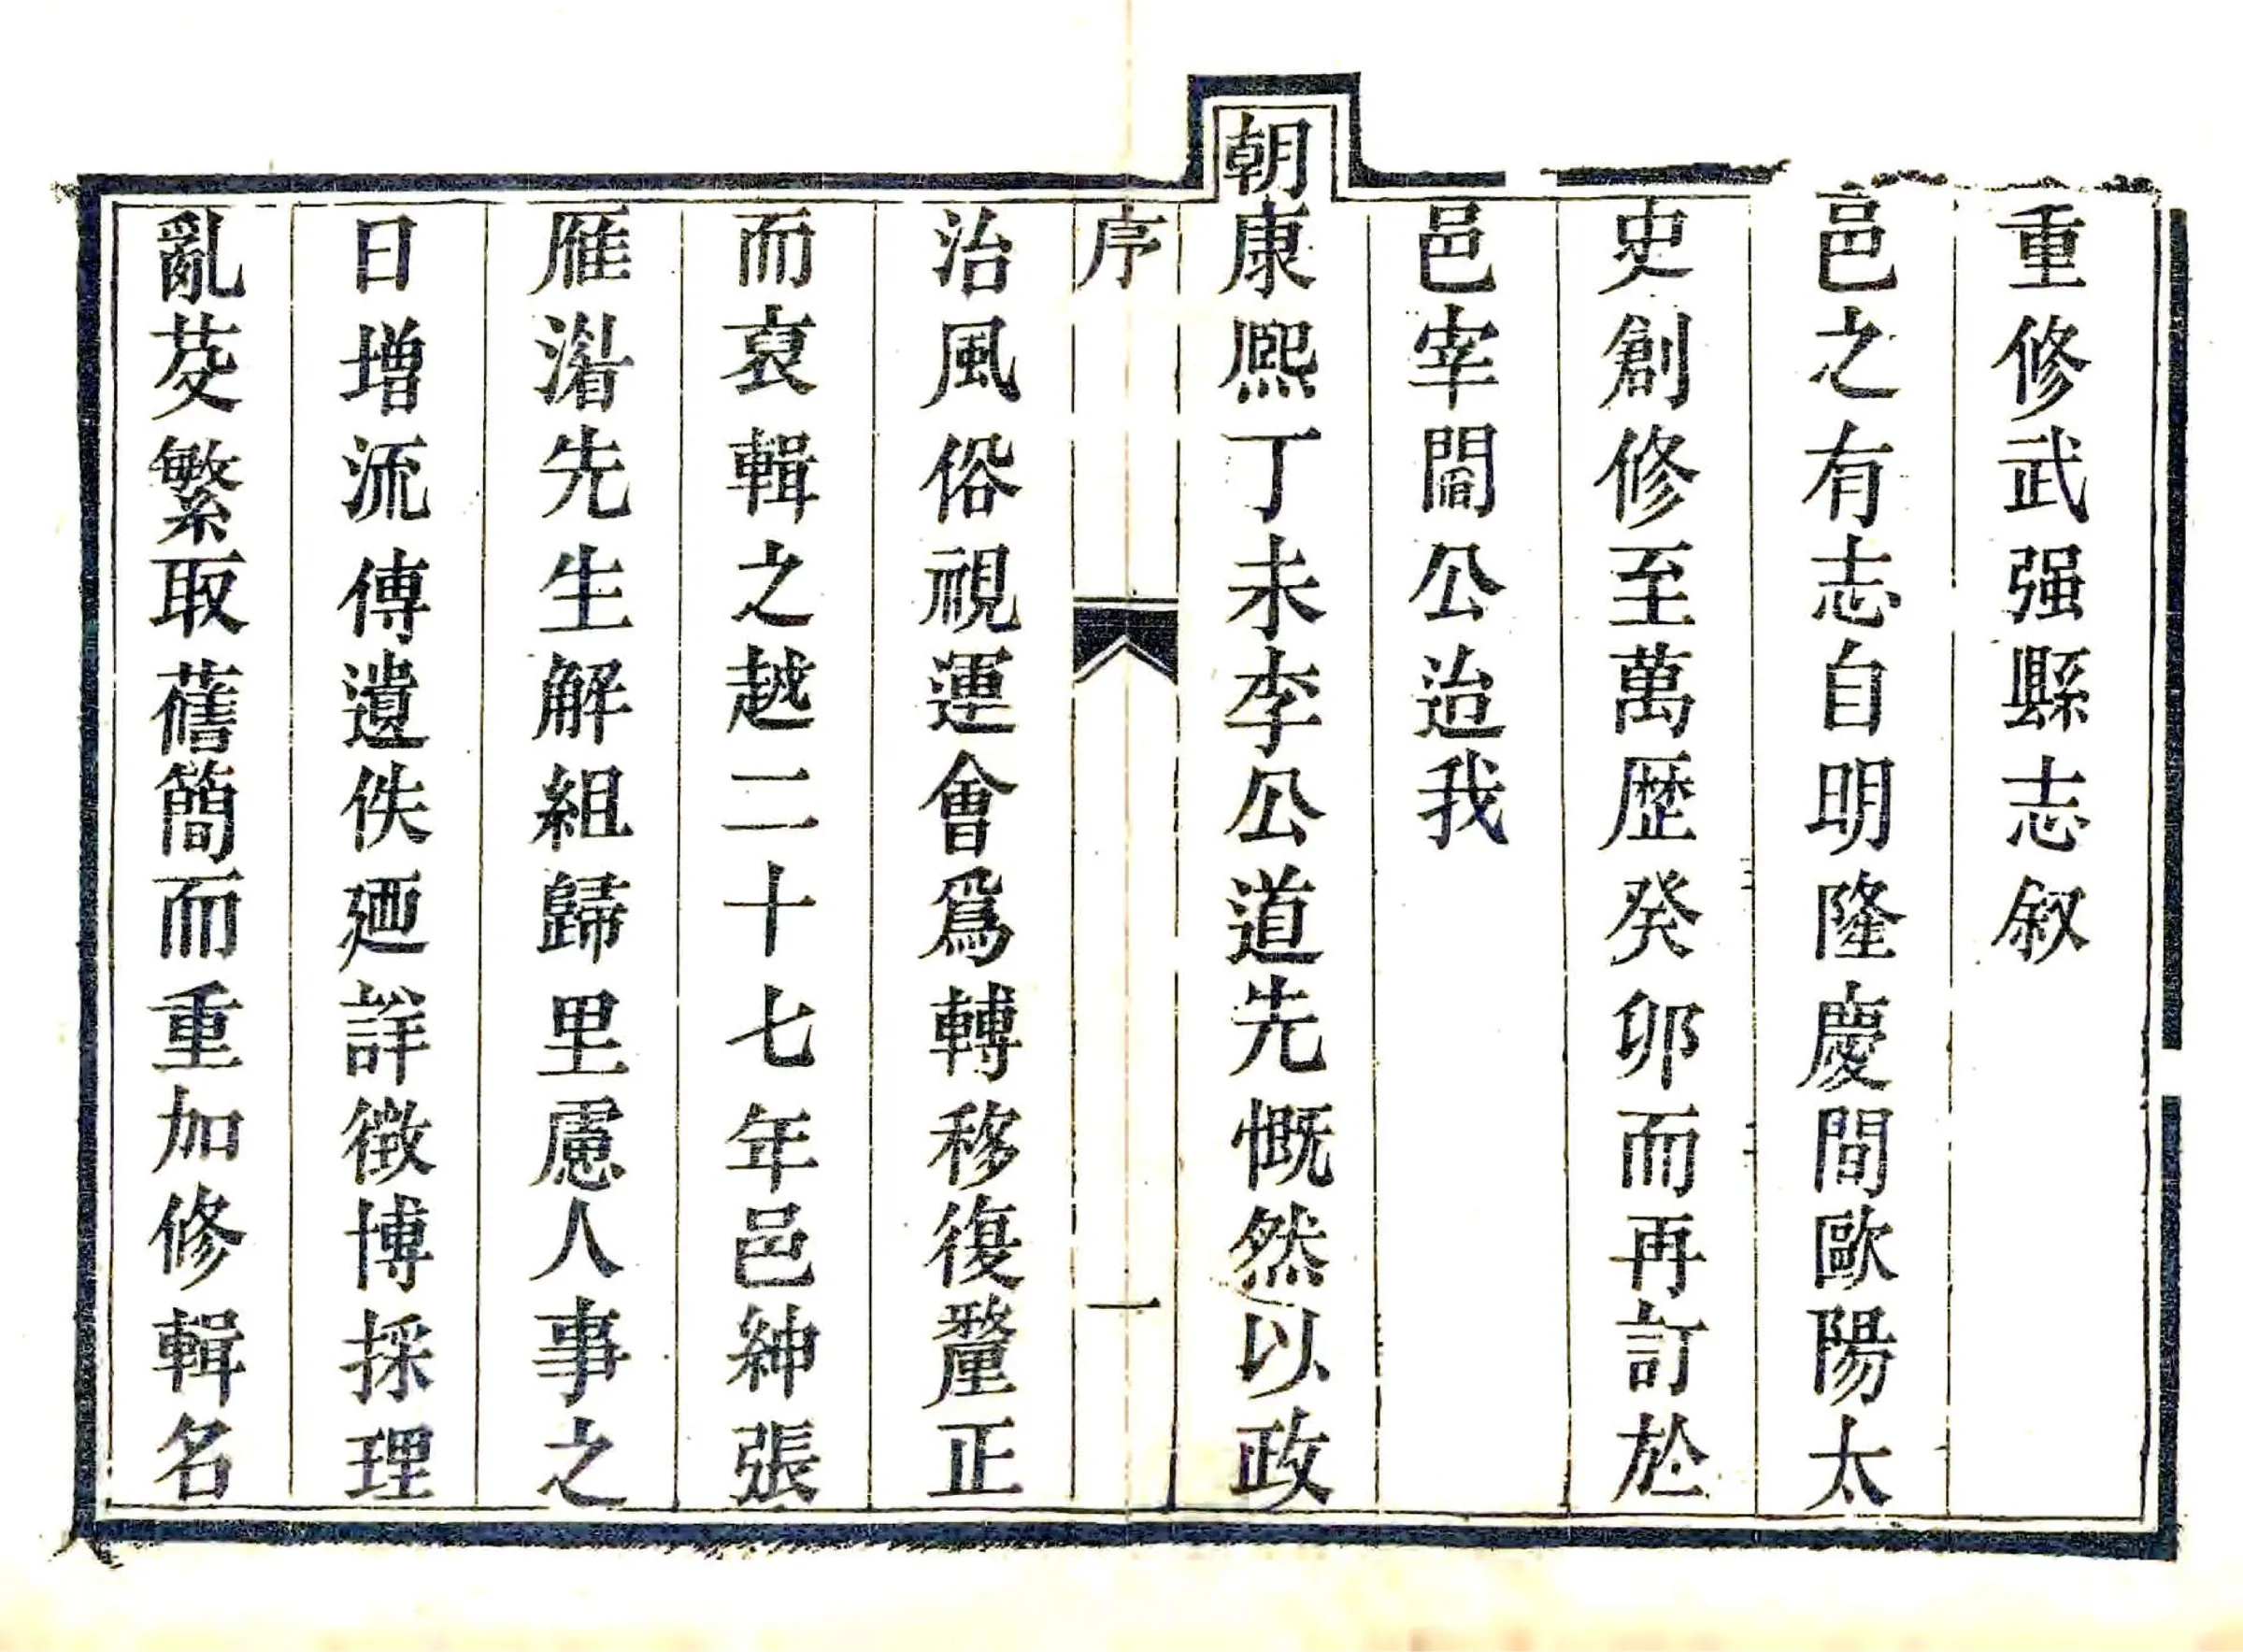 重修武强縣志叙
邑之有志自明隆慶間歐陽太
史創修至萬歷癸卯而再訂於
邑宰閻公迨我
朝康熙丁未李公道先慨然以政
序 一
治風俗視運會爲轉移復釐正
而裒輯之越二十七年邑紳張
雁湝先生解組歸里慮人事之
日增流傳遺佚廼詳徵博採理
亂芟繁取舊簡而重加修輯名